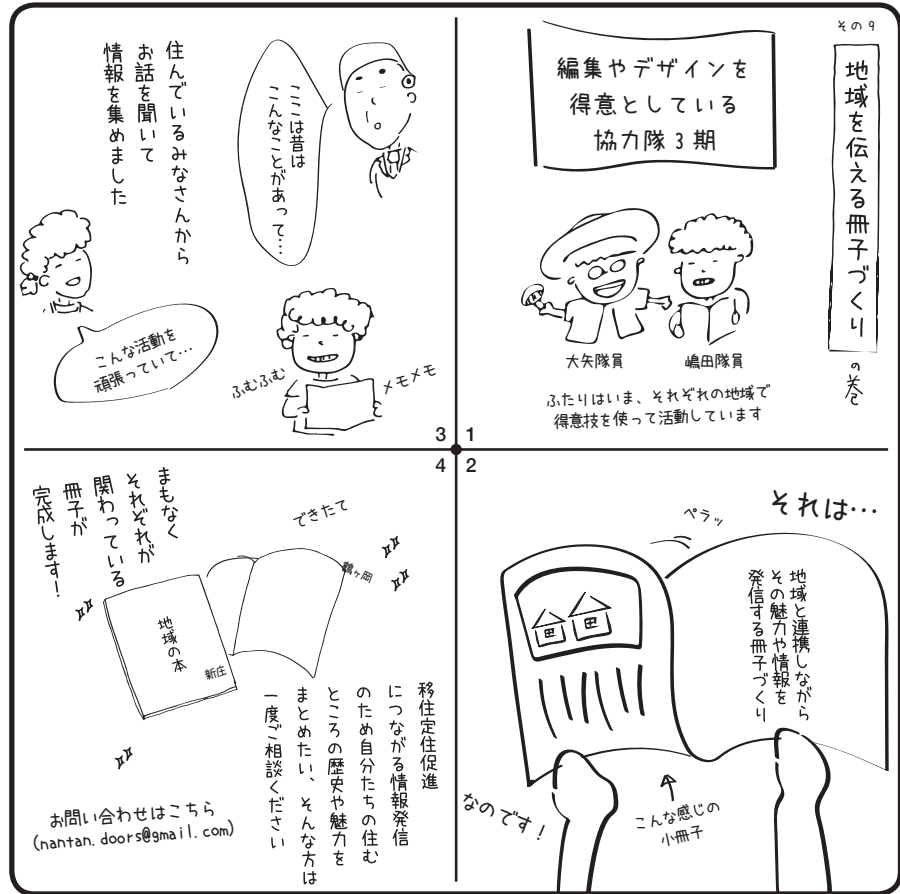 その9
地域を伝える冊子づくり
の巻
編集やデザインを
得意としている
協力隊3期
大矢隊員
嶋田隊員
ふたりはいま、それぞれの地域で
得意技を使って活動しています
1
2
それは…
ペラッ
地域と連携しながら
その魅力や情報を
発信する冊子づくり
こんな感じの
小冊子
なのです！
3
ここは昔は
こんなことがあって…
住んでいるみなさんから
お話を聞いて
情報を集めました
こんな活動を
頑張っていて…
ふむふむ
メモメモ
4
できたて
鶴ヶ岡
まもなく
それぞれが
関わっている
冊子が
完成します！
地域の本
新庄
移住定住促進
につながる情報発信
のため自分たちの住む
ところの歴史や魅力を
まとめたい、そんな方は
一度ご相談ください
お問い合わせはこちら
(nantan.doors@gmail.com)